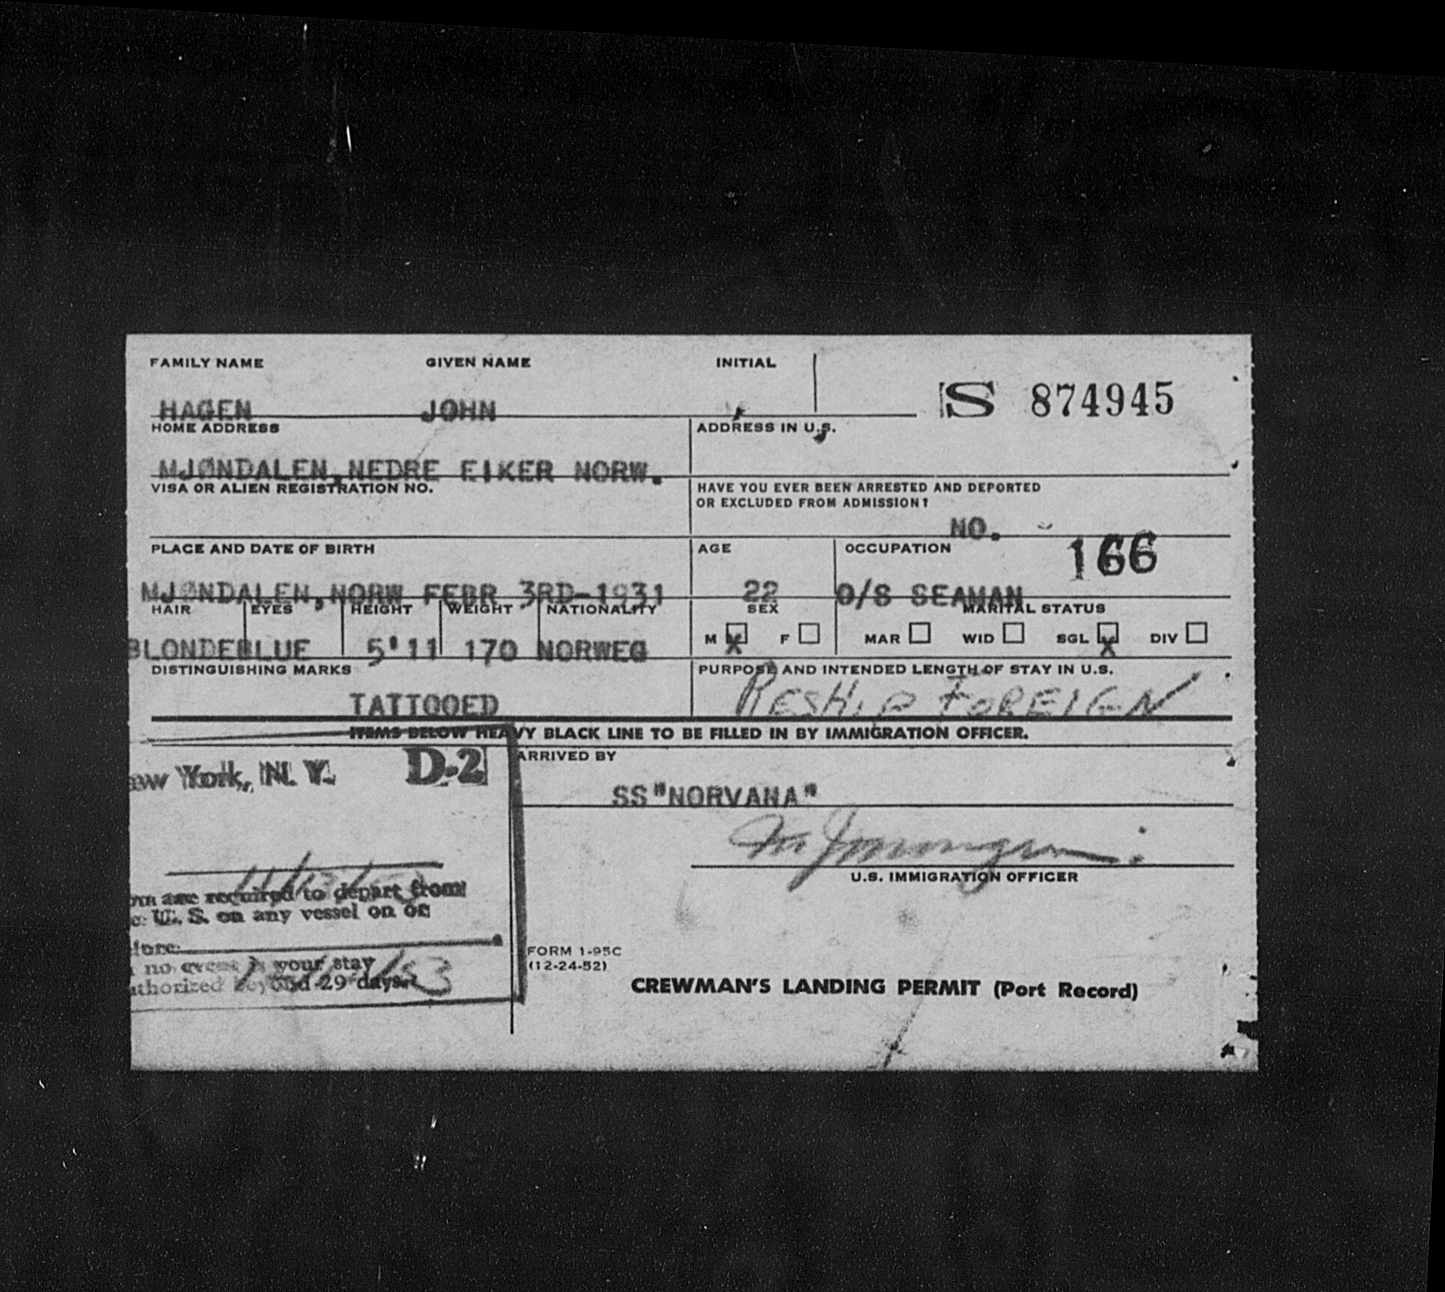 FAMILY NAME GIVEN NAME INITIAL
HAGEN JOHN S 874945
HOME ADDRESS ADDRESS IN U.S.
MJØNDALEN,NEDRE EIKER NORW.
VISA OR ALIEN REGISTRATION NO. HAVE YOU EVER BEEN ARRESTED AND DEPORTED
OR EXCLUDED FROM ADMISSION?
NO.
PLACE AND DATE OF BIRTH AGE OCCUPATION 166
MJØNDALEN,NORW FEBR 3RD-1931 22 O/S SEAMAN
HAIR EYES HEIGHT WEIGHT NATIONALITY SEX MARITAL STATUS
BLONDE BLUE 5'11 170 NORWEG M X F MAR WID SGL X DIV
DISTINGUISHING MARKS PURPOSE AND INTENDED LENGTH OF STAY IN U.S.
TATTOOED RESHIP FOREIGN
ITEMS BELOW HEAVY BLACK LINE TO BE FILLED IN BY IMMIGRATION OFFICER.
ew York, N. Y. D-2 ARRIVED BY
SS"NORVANA"
U.S. IMMIGRATION OFFICER
are required to depart from
U. S. on any vessel on or
fore
no event is your stay
uthorized beyond 29 days.
FORM I-95C
(12-24-52)
CREWMAN'S LANDING PERMIT (Port Record)